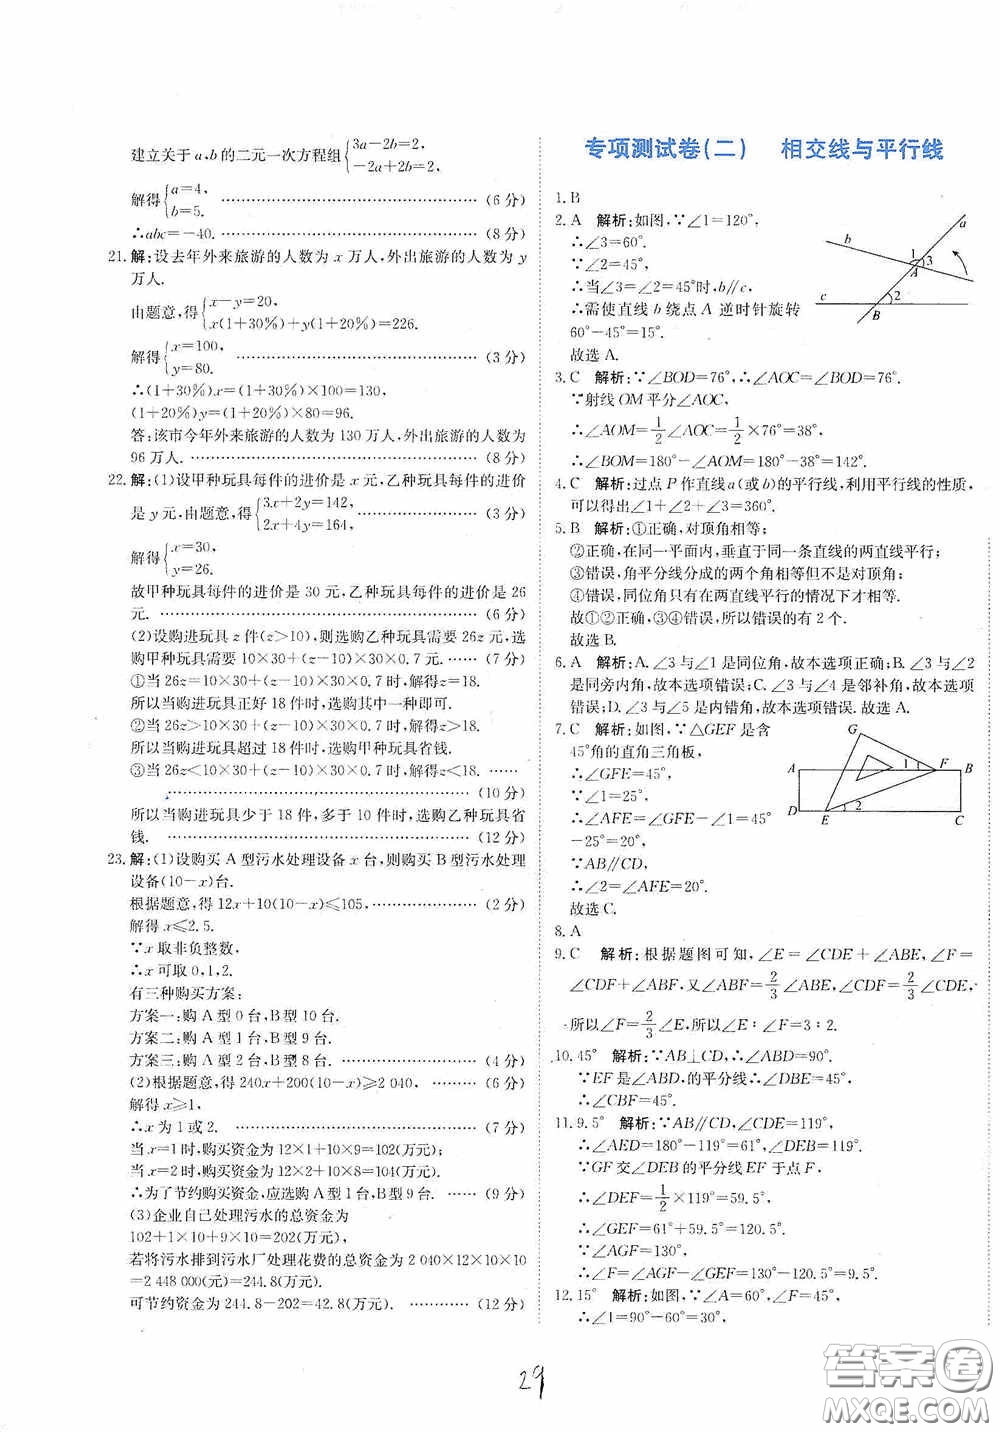 建立关于a,b的二元一次方程组{3a-2b=2, -2a+2b=2,
解得{a=4, b=5. ……(6分)
∴abc=-40. ……(8分)
21.解:设去年外来旅游的人数为x万人,外出旅游的人数为y
万人.
由题意,得{x-y=20, x(1+30%)+y(1+20%)=226.
解得{x=100, y=80. ……(3分)
∴(1+30%)x=(1+30%)×100=130,
(1+20%)y=(1+20%)×80=96.
答:该市今年外来旅游的人数为130万人,外出旅游的人数为
96万人. ……(8分)
22.解:(1)设甲种玩具每件的进价是x元,乙种玩具每件的进价
是y元,由题意,得{3x+2y=142, 2x+4y=164, ……(3分)
解得{x=30, y=26.
故甲种玩具每件的进价是30元,乙种玩具每件的进价是26
元. ……(6分)
(2)设购进玩具z件(z>10),则选购乙种玩具需要26z元,选
购甲种玩具需要10×30+(z-10)×30×0.7元. ……(7分)
①当26z=10×30+(z-10)×30×0.7时,解得z=18.
所以当购进玩具正好18件时,选购其中一种即可.
②当26z>10×30+(z-10)×30×0.7时,解得z>18.
所以当购进玩具超过18件时,选购甲种玩具省钱.
③当26z<10×30+(z-10)×30×0.7时,解得z<18. ……
……(10分)
所以当购进玩具少于18件,多于10件时,选购乙种玩具省
钱. ……(12分)
23.解:(1)设购买A型污水处理设备x台,则购买B型污水处理
设备(10-x)台.
根据题意,得12x+10(10-x)≤105, ……(2分)
解得x≤2.5.
∵x取非负整数,
∴x可取0,1,2.
有三种购买方案:
方案一:购A型0台,B型10台.
方案二:购A型1台,B型9台.
方案三:购A型2台,B型8台. ……(4分)
(2)根据题意,得240x+200(10-x)≥2 040, ……(6分)
解得x≥1,
∴x为1或2. ……(7分)
当x=1时,购买资金为12×1+10×9=102(万元);
当x=2时,购买资金为12×2+10×8=104(万元),
∴为了节约购买资金,应选购A型1台,B型9台. ……(9分)
(3)企业自己处理污水的总资金为
102+1×10+9×10=202(万元),
若将污水排到污水厂处理花费的总资金为2 040×12×10×10
=2 448 000(元)=244.8(万元).
可节约资金为244.8-202=42.8(万元). ……(12分)
专项测试卷(二) 相交线与平行线
1.B
2.A 解析:如图,∵∠1=120°,
∴∠3=60°.
∵∠2=45°,
∴当∠3=∠2=45°时,b∥c,
∴需使直线b绕点A逆时针旋转
60°-45°=15°.
故选A.
a
b
1
A
3
c
2
B
3.C 解析:∵∠BOD=76°,∴∠AOC=∠BOD=76°.
∵射线OM平分∠AOC,
∴∠AOM=1/2∠AOC=1/2×76°=38°,
∴∠BOM=180°-∠AOM=180°-38°=142°.
4.C 解析:过点P作直线a(或b)的平行线,利用平行线的性质,
可以得出∠1+∠2+∠3=360°.
5.B 解析:①正确,对顶角相等;
②正确,在同一平面内,垂直于同一条直线的两直线平行;
③错误,角平分线分成的两个角相等但不是对顶角;
④错误,同位角只有在两直线平行的情况下才相等.
故①②正确,③④错误,所以错误的有2个.
故选B.
6.A 解析:A.∠3与∠1是同位角,故本选项正确;B.∠3与∠2
是同旁内角,故本选项错误;C.∠3与∠4是邻补角,故本选项
错误;D.∠3与∠5是内错角,故本选项错误.故选A.
7.C 解析:如图,∵△GEF是含
45°角的直角三角板,
∴∠GFE=45°,
∵∠1=25°,
∴∠AFE=∠GFE-∠1=45°
-25°=20°,
∵AB∥CD,
∴∠2=∠AFE=20°.
故选C.
G
A
1
F
B
D
2
E
C
8.A
9.C 解析:根据题图可知,∠E=∠CDE+∠ABE,∠F=
∠CDF+∠ABF,又∠ABF=2/3∠ABE,∠CDF=2/3∠CDE,
所以∠F=2/3∠E,所以∠E∶∠F=3∶2.
10.45° 解析:∵AB⊥CD,∴∠ABD=90°.
∵EF是∠ABD,的平分线∴∠DBE=45°,
∴∠CBF=45°.
11.9.5° 解析:∵AB∥CD,∠CDE=119°,
∴∠AED=180°-119°=61°,∠DEB=119°.
∵GF交∠DEB的平分线EF于点F,
∴∠DEF=1/2×119°=59.5°,
∴∠GEF=61°+59.5°=120.5°.
∵∠AGF=130°,
∴∠F=∠AGF-∠GEF=130°-120.5°=9.5°.
12.15° 解析:如图,∵∠A=60°,∠F=45°,
∴∠1=90°-60°=30°,
29
答案圈
MXQE.COM